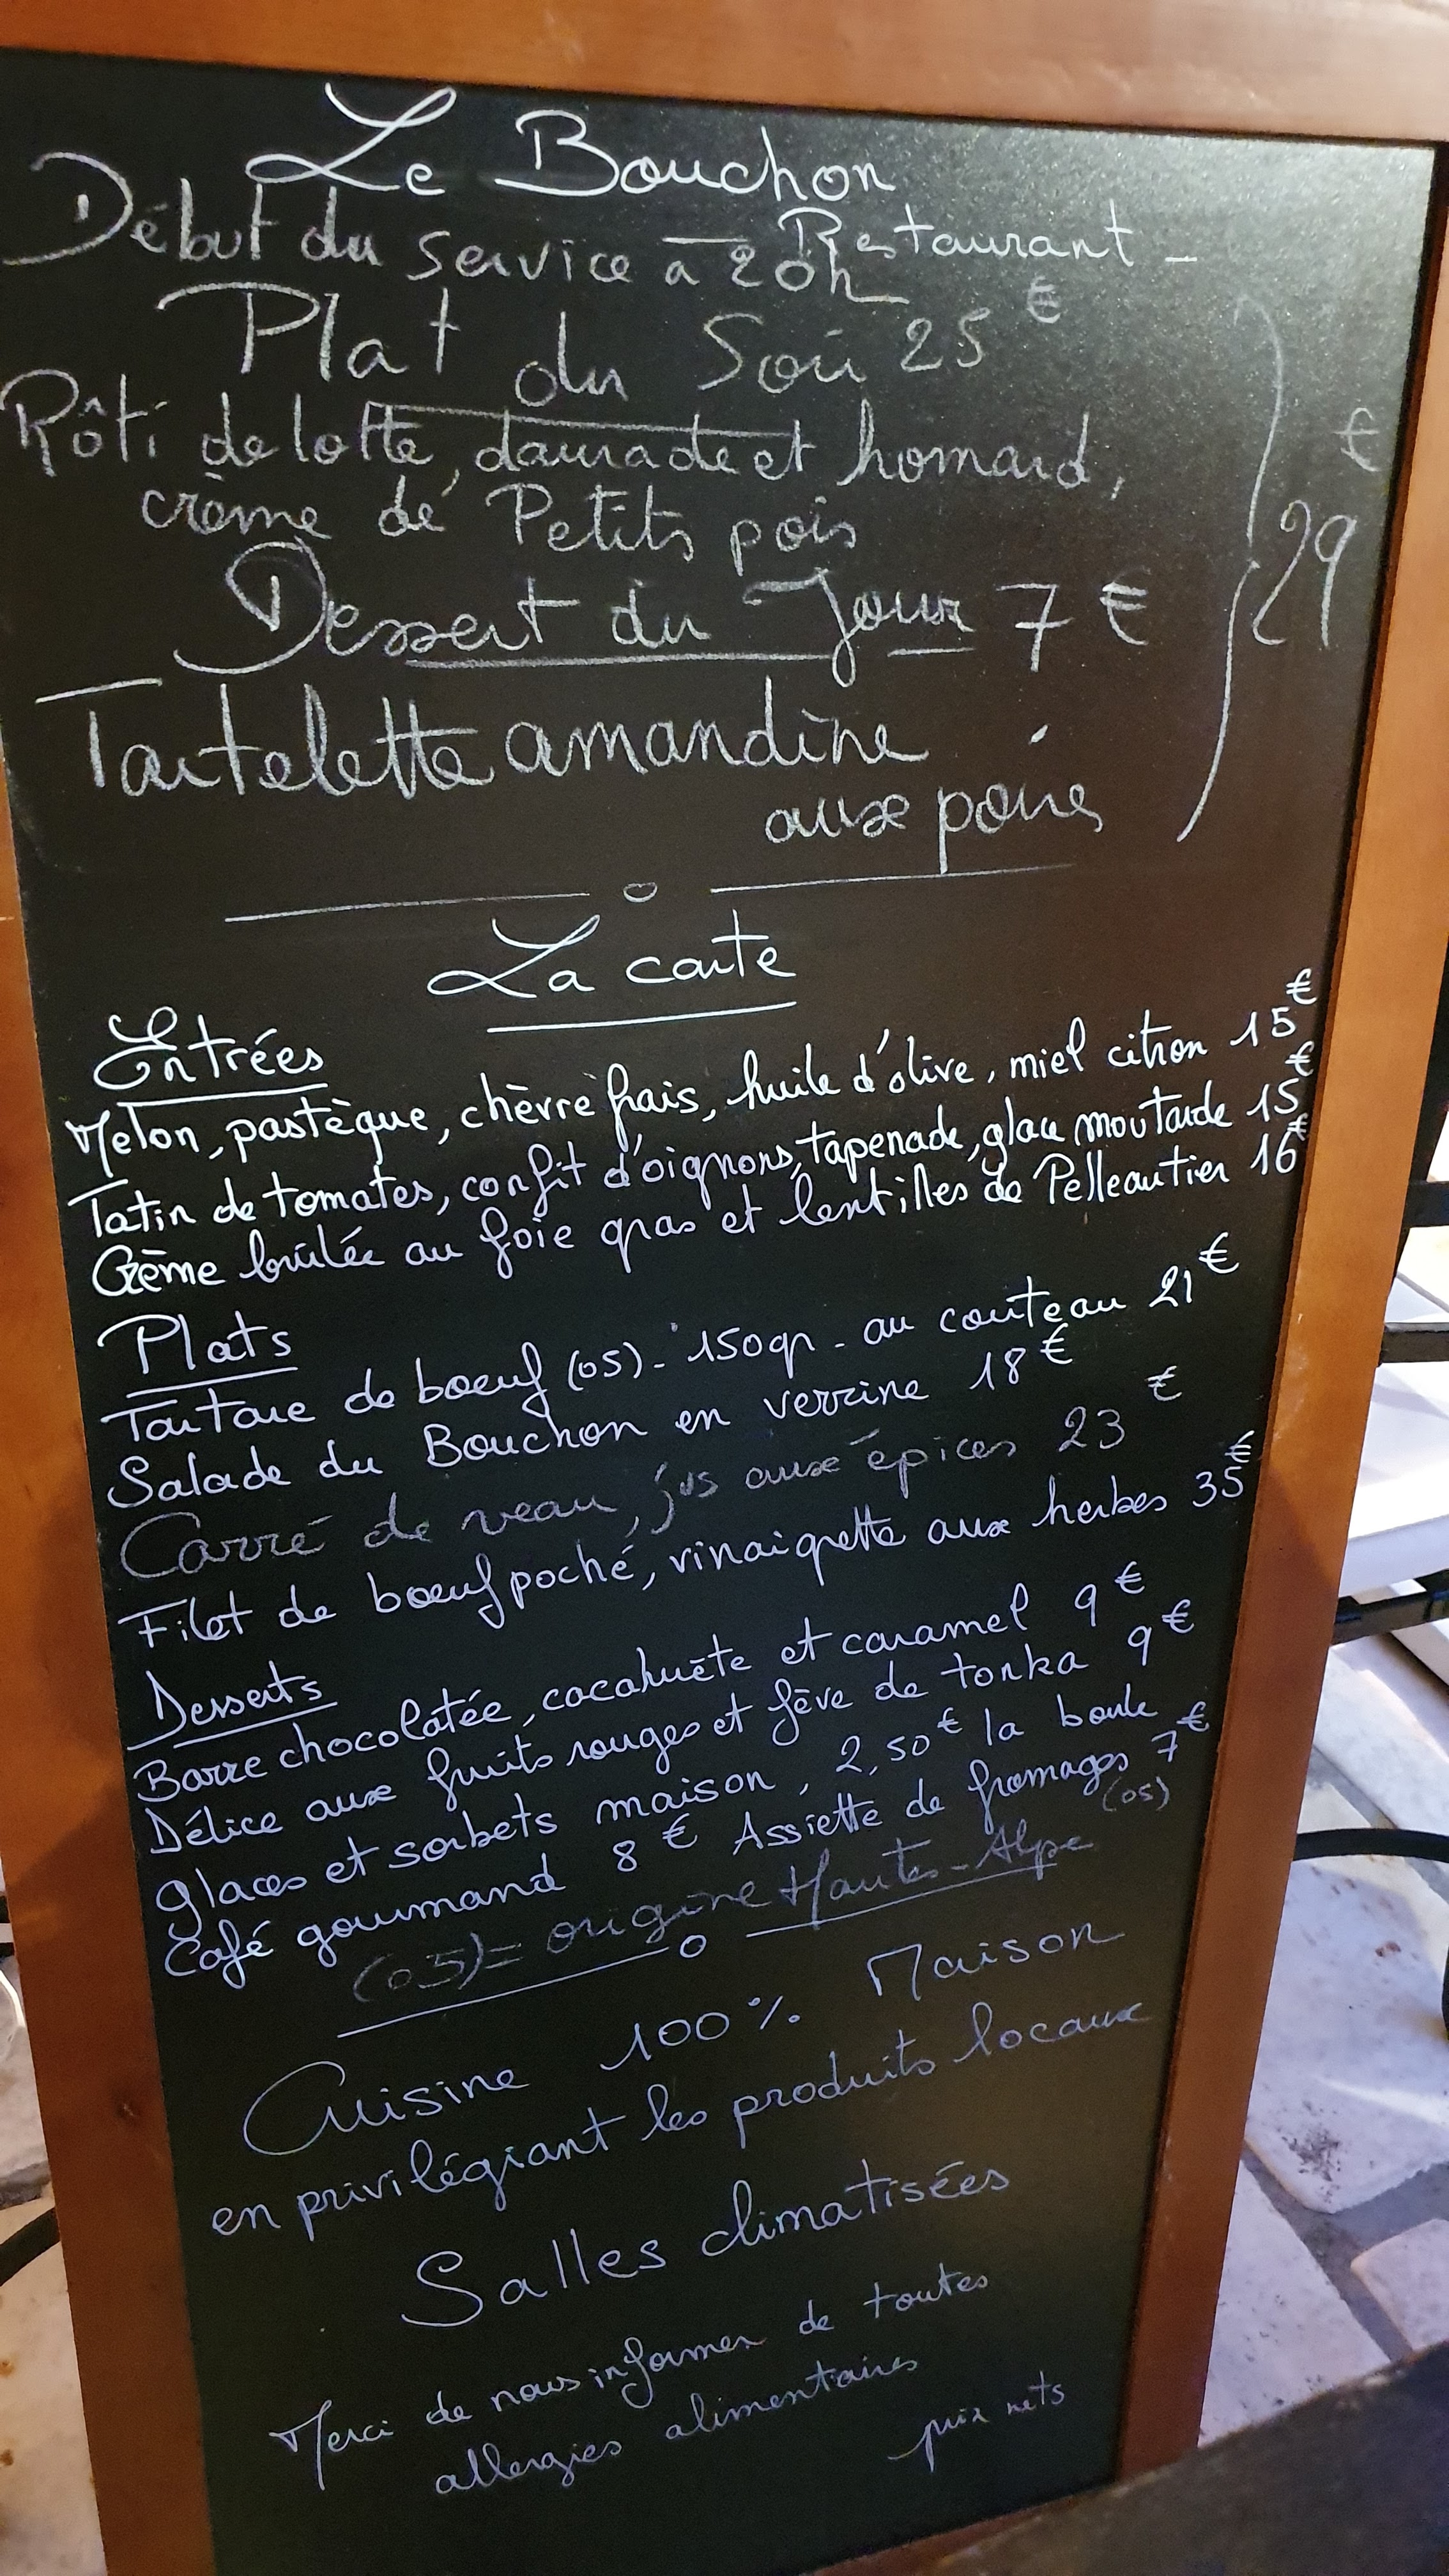 Le Bouchon
- Restaurant -
Début du service à 20h
Plat du Soir 25 €
Rôti de lotte, daurade et homard,
crème de Petits pois
Dessert du Jour 7 €
29 €
Tartelette amandine
aux poires
La carte
Entrées
Melon, pastèque, chèvre frais, huile d'olive, miel citron 15 €
Tatin de tomates, confit d'oignons, tapenade, glace moutarde 15 €
Crème brûlée au foie gras et lentilles de Pelleautier 16 €
Plats
Tartare de boeuf (05) - 150gr - au couteau 21 €
Salade du Bouchon en verrine 18 €
Carré de veau, jus aux épices 23 €
Filet de boeuf poché, vinaigrette aux herbes 35 €
Desserts
Barre chocolatée, cacahuète et caramel 9 €
Délice aux fruits rouges et fève de tonka 9 €
Glaces et sorbets maison, 2,50 € la boule
Café gourmand 8 € Assiette de fromages 7 €
(05)
(05) = origine Hautes-Alpe
Cuisine 100 % Maison
en privilégiant les produits locaux
Salles climatisées
Merci de nous informer de toutes
allergies alimentaires
prix nets